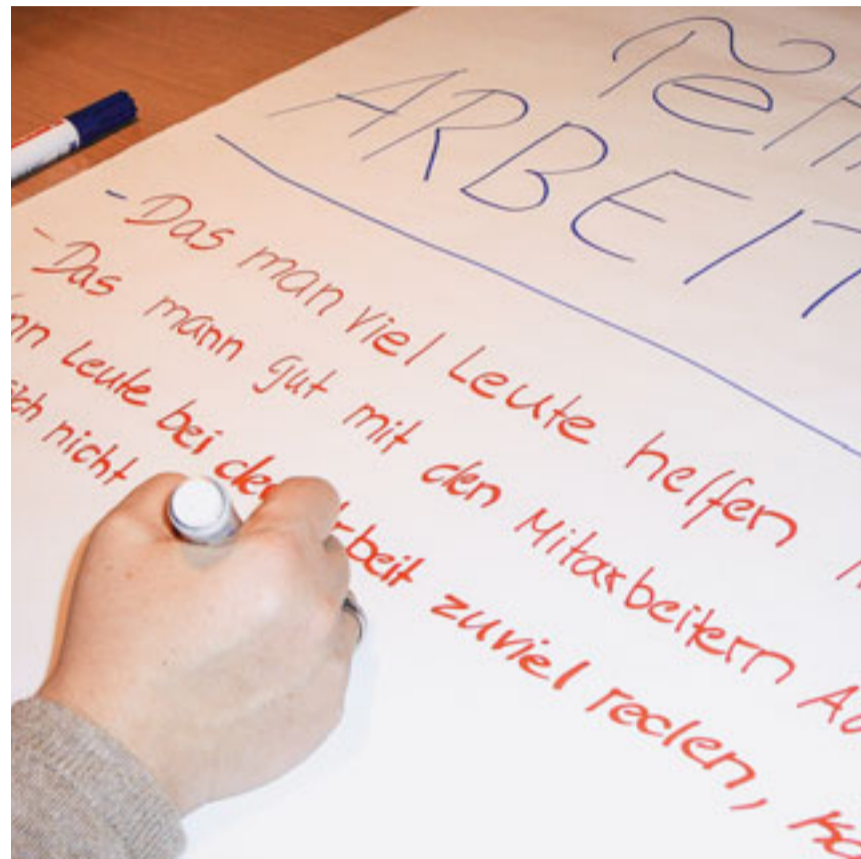 ARBEIT
- Das man viel Leute helfen
- Das mann gut mit den Mitarbeitern
Leute bei der Arbeit zuviel reden,
nicht